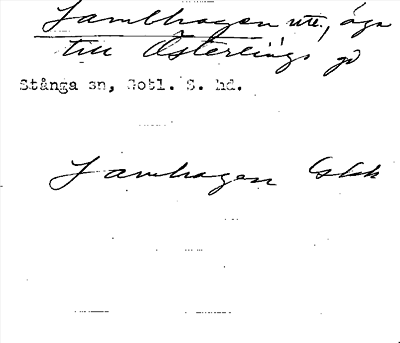 Lamlhagen utt., äga
till Österlings gd
Stånga sn, Gotl. S. hd.
Lamhagen GSkk